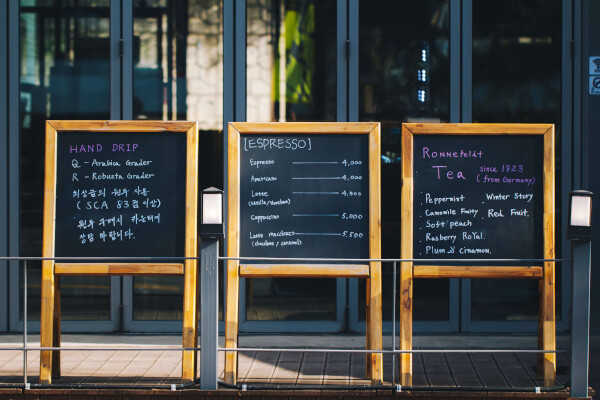 HAND DRIP
Q - Arabica Grader
R - Robusta Grader
최상급의 원두 사용
(SCA 83점 이상)
원두 구매시 카운터에
상담 바랍니다.
[ESPRESSO]
Espresso 4,000
Americano 4,000
Latte 4,500
(vanilla/hazelnut)
Cappuccino 5,000
Latte macchiato 5,500
(chocolate / caramel)
Ronnefeldt
Tea since 1823
(from Germany)
. Peppermint . Winter Story
. Camomile Fruity . Red Fruit.
. Soft peach
. Rasberry Royal.
. Plum & cinnamon.